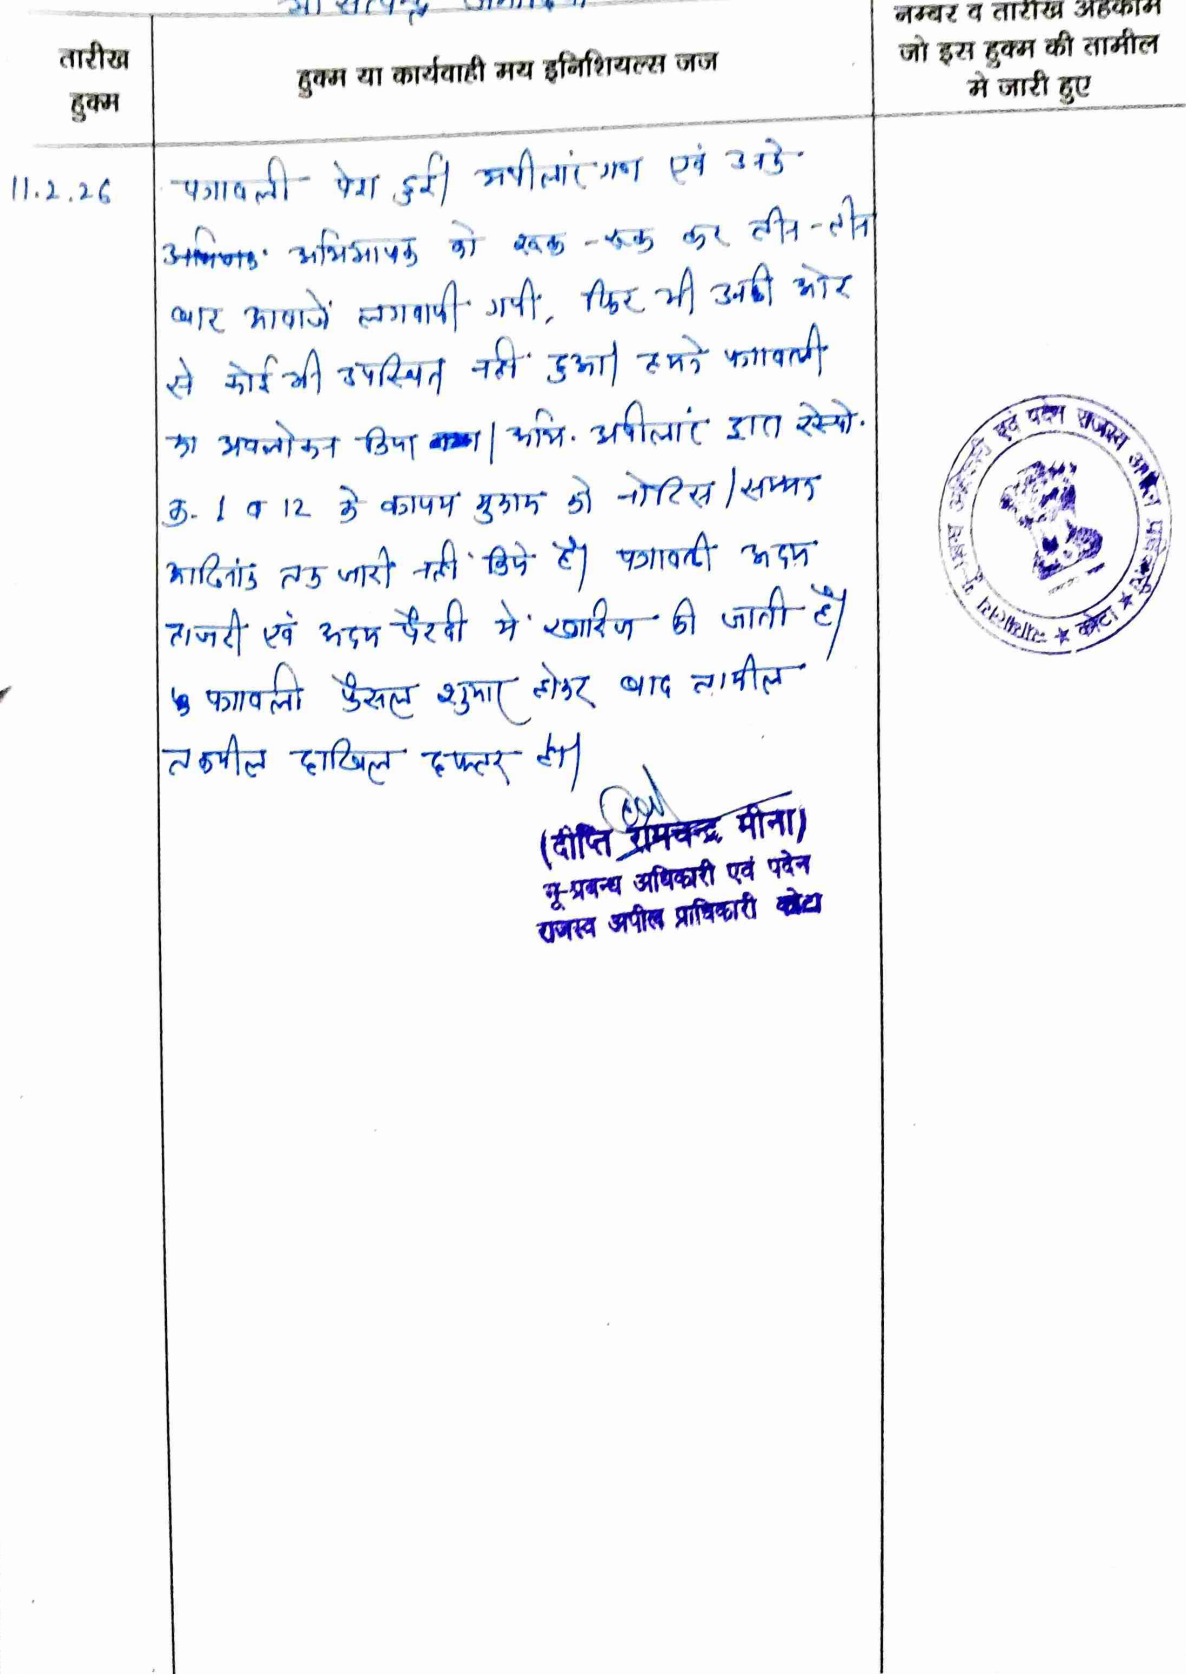 तारीख हुक्म
हुक्म या कार्यवाही मय इनिशियल्स जज
नम्बर व तारीख अहकाम
जो इस हुक्म की तामील
मे जारी हुए
11.2.26
पत्रावली पेश हुई। अपीलांटगण एवं उनके
अभिभाषक को रूक-रूक कर तीन-तीन
बार आवाजें लगवायी गयी, फिर भी उनकी ओर
से कोई भी उपस्थित नहीं हुआ। हमने पत्रावली
का अवलोकन किया। अभि. अपीलांट द्वारा रेस्पो.
क्र. 1 व 12 के कायम मुकाम को नोटिस/सम्मन
आदिनांक तक जारी नहीं किये है। पत्रावली अदम
हाजरी एवं अदम पैरवी में खारिज की जाती है।
पत्रावली फैसल शुमार होकर बाद तामील
तकमील दाखिल दफ्तर हो।
(दीप्ति रामचन्द्र मीना)
भू-प्रबन्ध अधिकारी एवं पदेन
राजस्व अपील प्राधिकारी कोटा
एवं पदेन राजस्व अपील कोटा